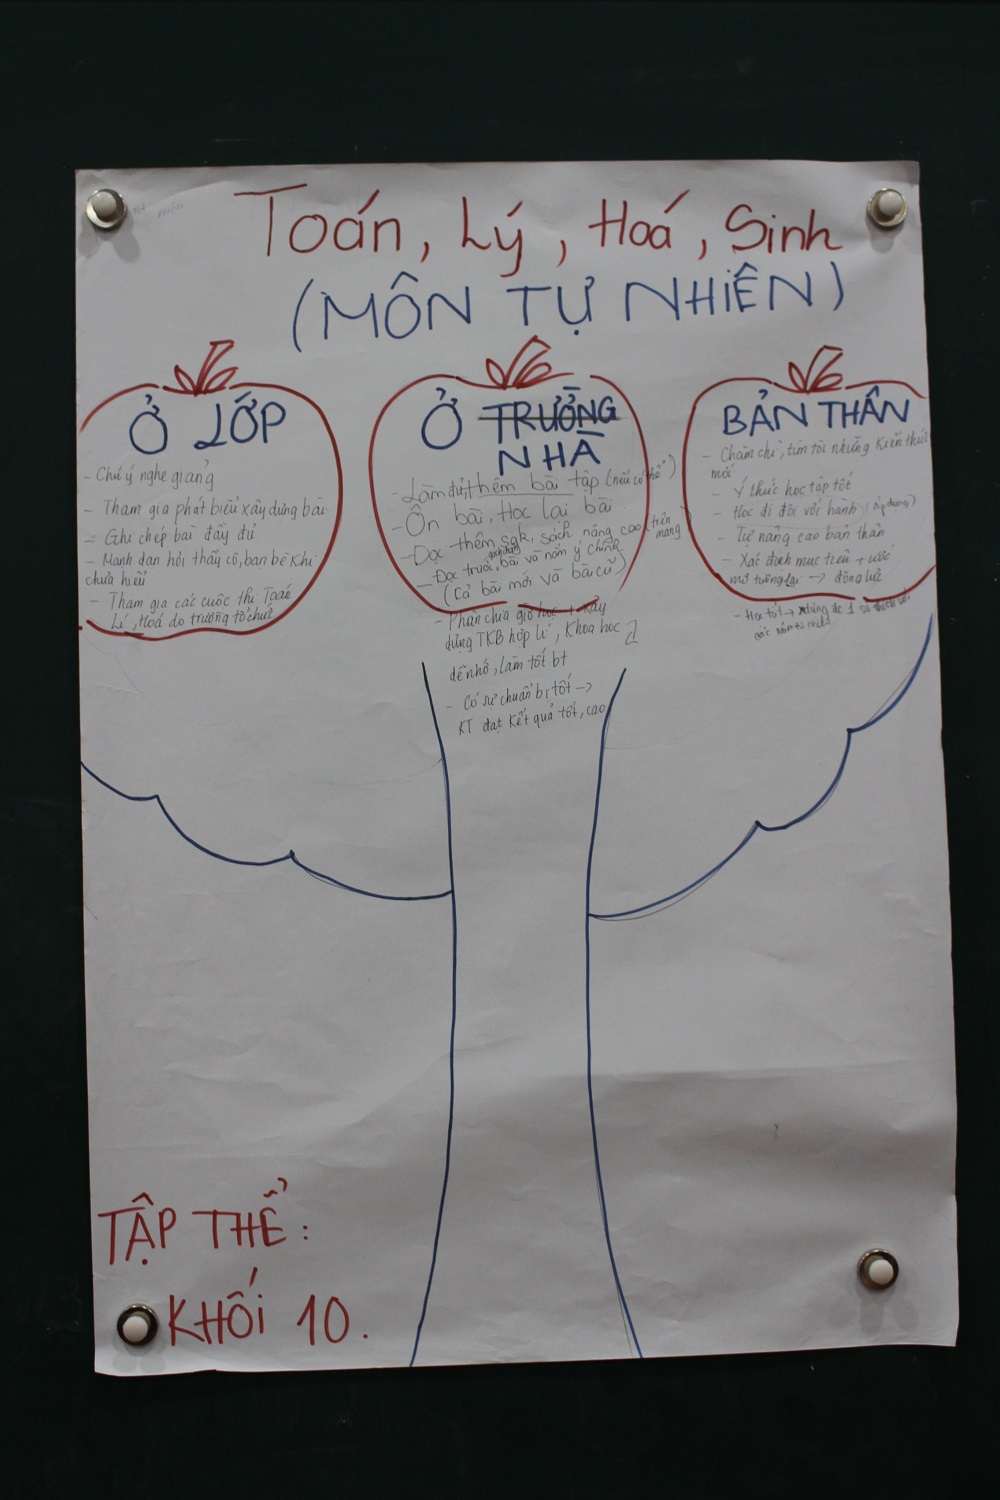 Toán, Lý, Hoá, Sinh
(MÔN TỰ NHIÊN)
Ở LỚP
- Chú ý nghe giảng
- Tham gia phát biểu xây dựng bài
- Ghi chép bài đầy đủ
- Mạnh dạn hỏi thầy cô, bạn bè khi
chưa hiểu
- Tham gia các cuộc thi Toán
Lí, Hoá do trường tổ chức
Ở TRƯỜNG
NHÀ
- Làm đủ, thêm bài tập (nếu có thể)
- Ôn bài, Học lại bài
- Đọc thêm sgk, sách nâng cao (trên
mạng)
- Đọc trước bài và nắm ý chính
(Cả bài mới và bài cũ)
- Phân chia giờ học + xây
dựng TKB hợp lí, Khoa học
dễ nhớ, làm tốt bt
- Có sự chuẩn bị tốt →
KT đạt kết quả tốt, cao
BẢN THÂN
- Chăm chỉ, tìm tòi những kiến thức
mới
- Ý thức học tập tốt
- Học đi đôi với hành (áp dụng)
- Tự nâng cao bản thân
- Xác định mục tiêu + ước
mơ tương lai → động lực
- Học tốt →
các môn tự nhiên
TẬP THỂ:
KHỐI 10.